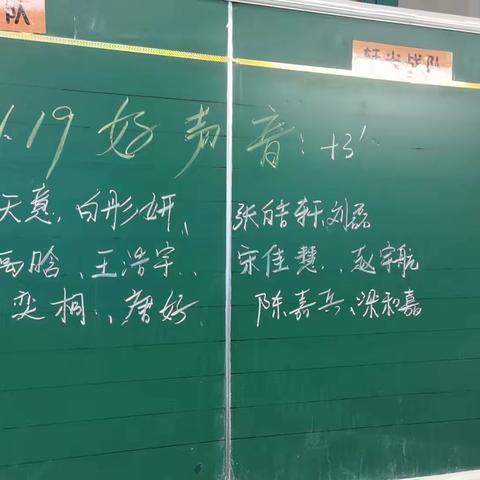 队
战队
.19 好声音:+3'
天意、白彤妍、张皓轩、刘磊
晗、王浩宇、宋佳慧、赵宇航
奕桐、唐好 陈嘉兵、梁和嘉